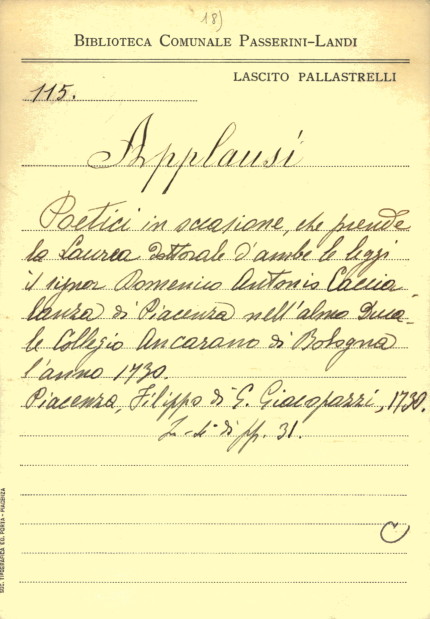 18)
BIBLIOTECA COMUNALE PASSERINI-LANDI
LASCITO PALLASTRELLI
115.
Applausi
Poetici in occasione, che prende
la Laurea Dottorale d'ambe le leggi
il signor Domenico Antonio Caccia
lanza di Piacenza nell'almo Duca-
le Collegio Ancarano di Bologna
l'anno 1730.
Piacenza, Filippo di G. Giacopazzi, 1730.
di pp. 31.
C
SOC. TIPOGRAFICA ED. PORTA - PIACENZA